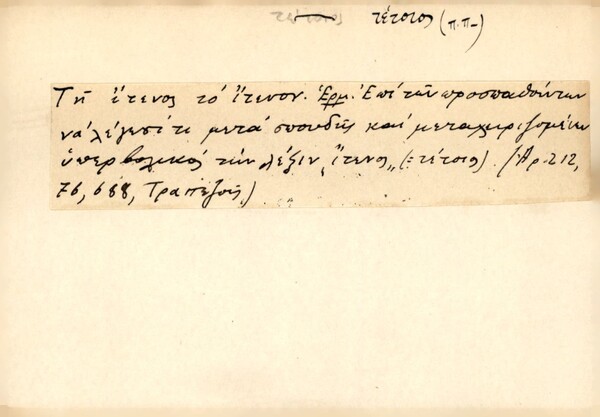 τέτοιος (π.π-)
Τῆ ἴτενος τὸ ἴτενον. Ἑρμ. Ἐπὶ τῶν προσπαθούντων
νὰ λέγεσί τι μετὰ σπουδῆς καὶ μεταχειριζομένων
ὑπερβολικῶς τὴν λέξιν „ἴτενος„ (= τέτοιος). (Ἀρ. 212,
76, 688, Τραπεζοῦς)